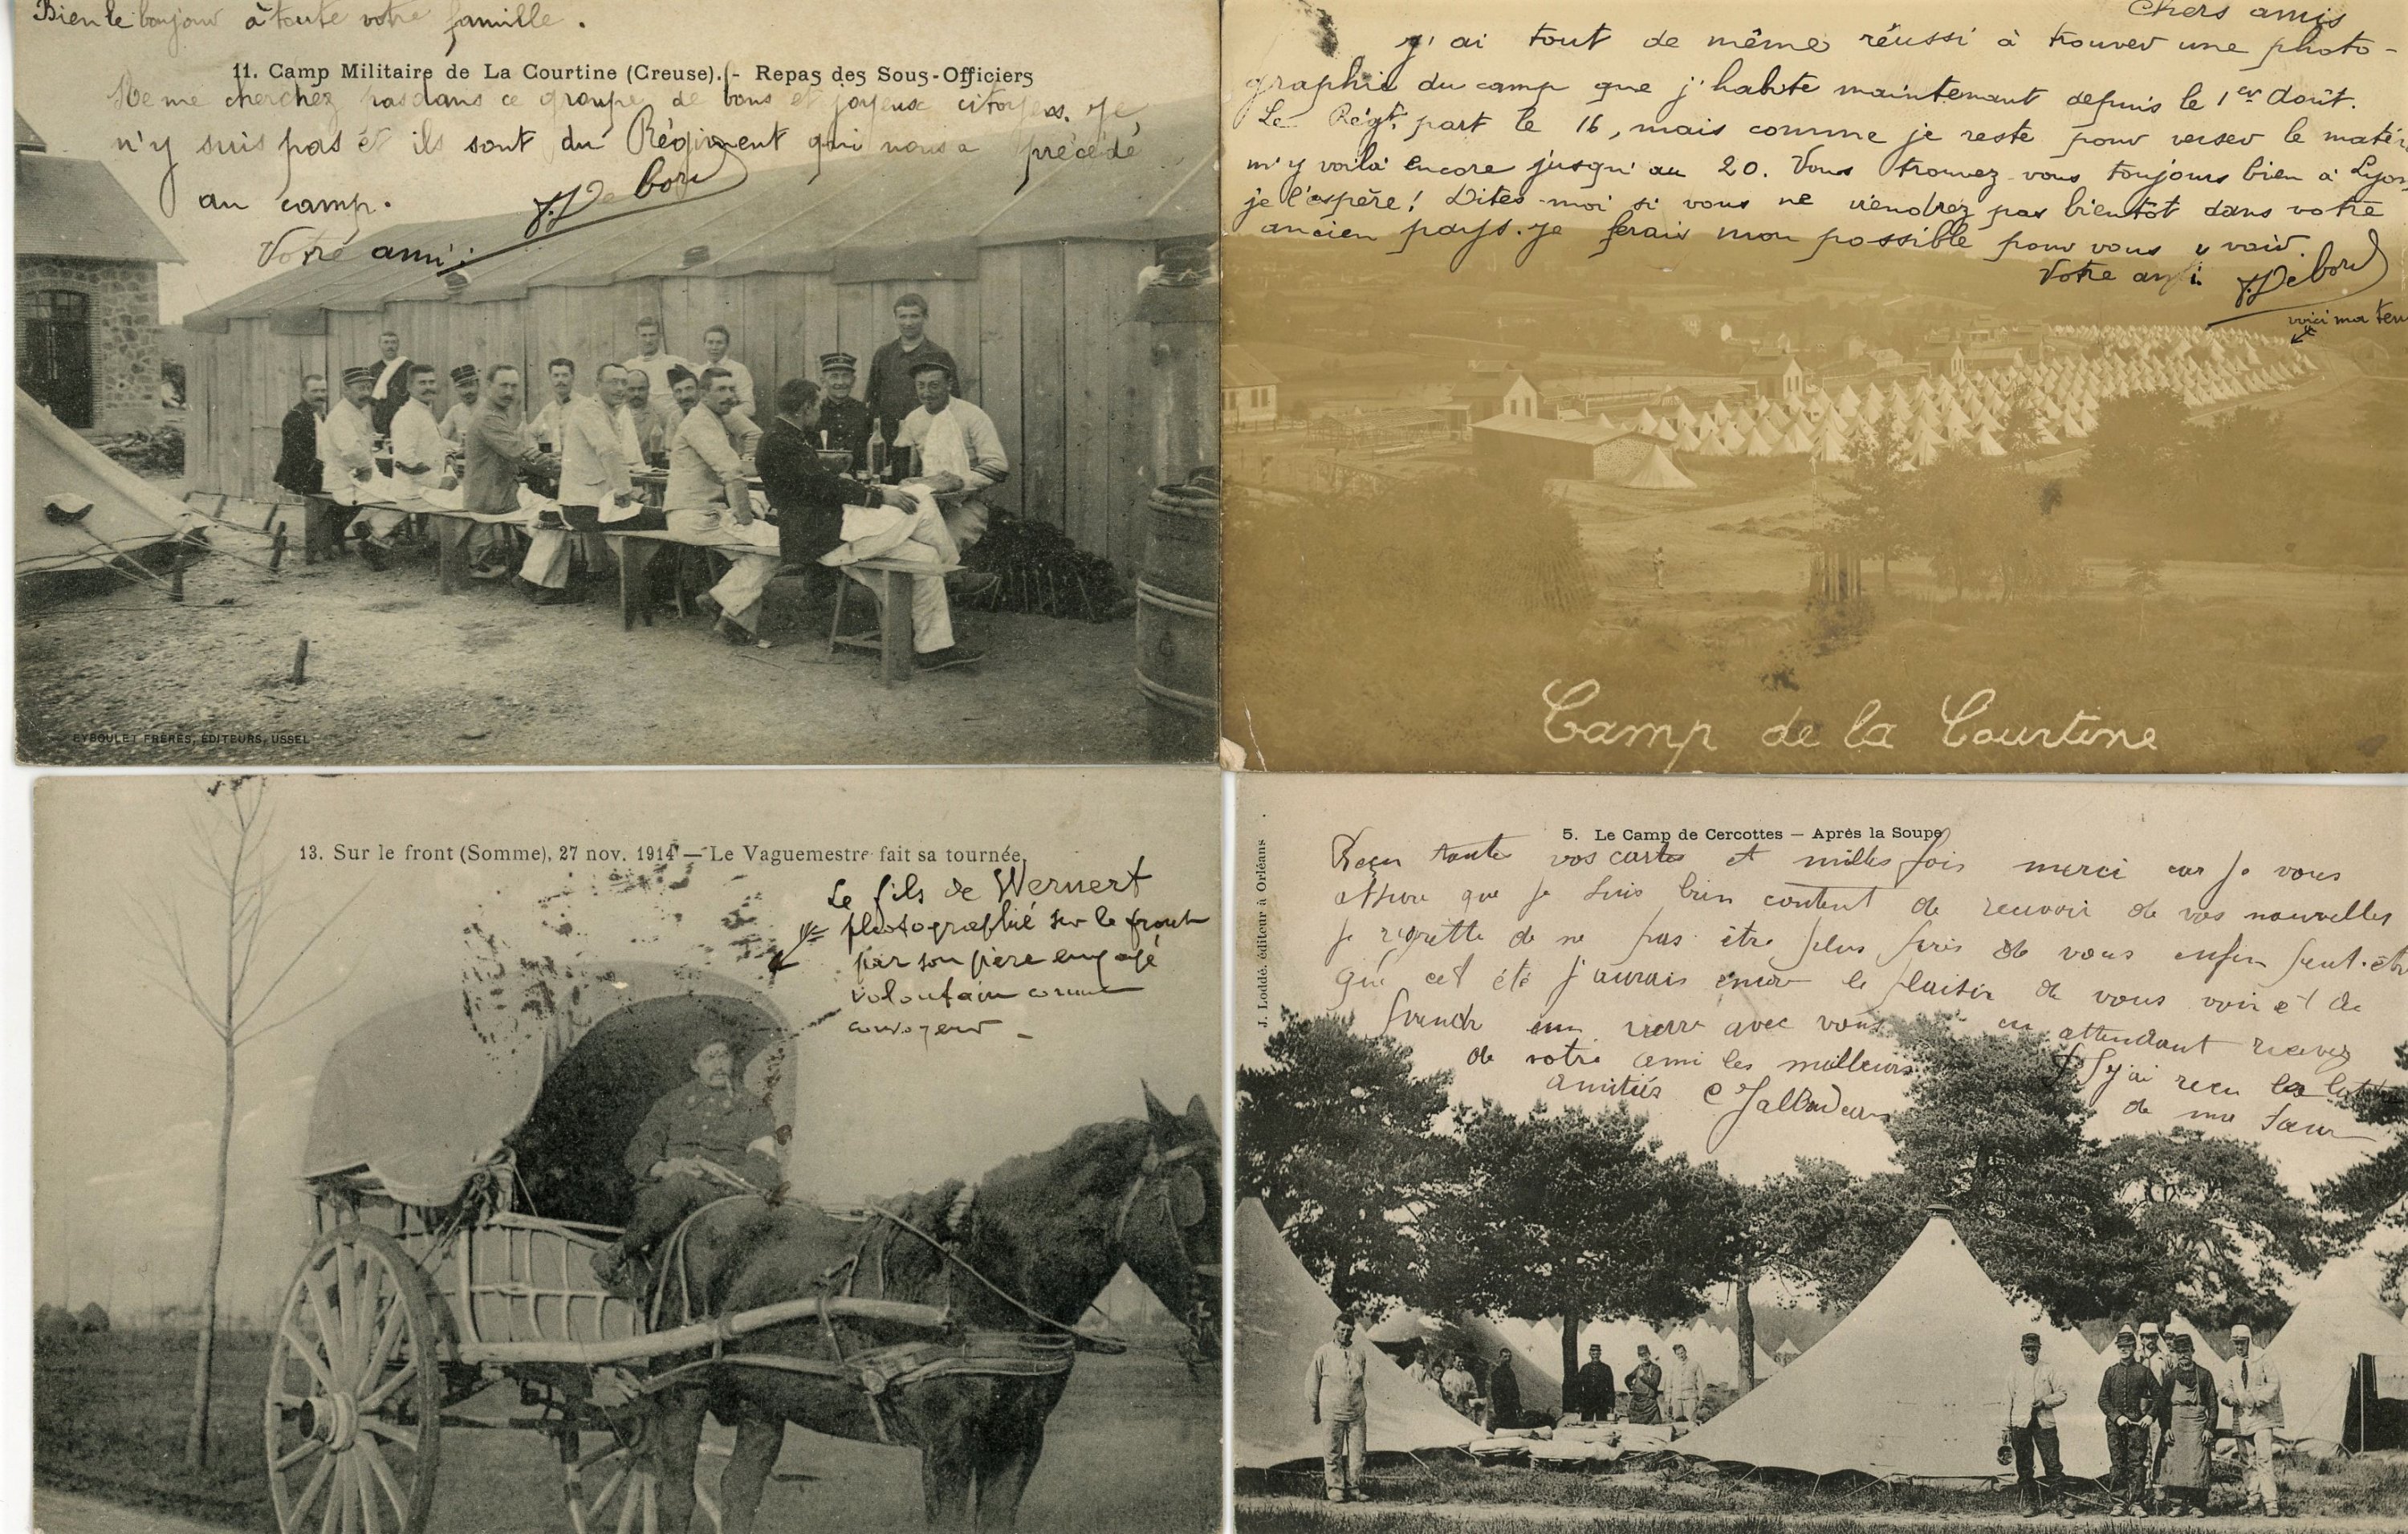 Bien le bonjour à toute votre famille.
11. Camp Militaire de La Courtine (Creuse). - Repas des Sous-Officiers
Ne me cherchez pas dans ce groupe de bons et joyeux citoyens. Je
n'y suis pas et ils sont du Régiment qui nous a précédé
au camp.
Votre ami:
Debord
EYBOULET FRÈRES, ÉDITEURS, USSEL
Chers amis
J'ai tout de même réussi à trouver une photo-
graphie du camp que j'habite maintenant depuis le 1er Août.
Le Régt. part le 16, mais comme je reste pour verser le
m'y voilà encore jusqu'au 20. Vous trouvez vous toujours bien à Lyon
je l'espère! Dites-moi si vous ne viendrez pas bientôt dans votre
ancien pays. Je ferais mon possible pour vous y voir.
Votre ami. Debord
voici ma
Camp de la Courtine
13. Sur le front (Somme), 27 nov. 1914 — Le Vaguemestre fait sa tournée.
Le fils de Wernert
photographié sur le front
par son père engagé
volontaire comme
convoyeur -
5. Le Camp de Cercottes — Après la Soupe
J. Loddé, éditeur à Orléans
Reçu toute vos cartes et milles fois merci car je vous
assure que je suis bien content de recevoir de vos nouvelles
je regrette de ne pas être plus près de vous enfin peut-être
que cet été j'aurais encor le plaisir de vous voir et de
prendre un verre avec vous en attendant recevez
de votre ami les meilleurs
amitiés
j'ai reçu la lettre
de ma sœur